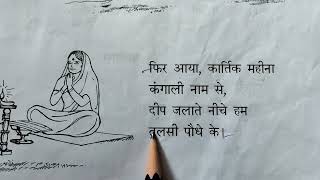 फिर आया, कार्तिक महीना
कंगाली नाम से,
दीप जलाते नीचे हम
तुलसी पौधे के।